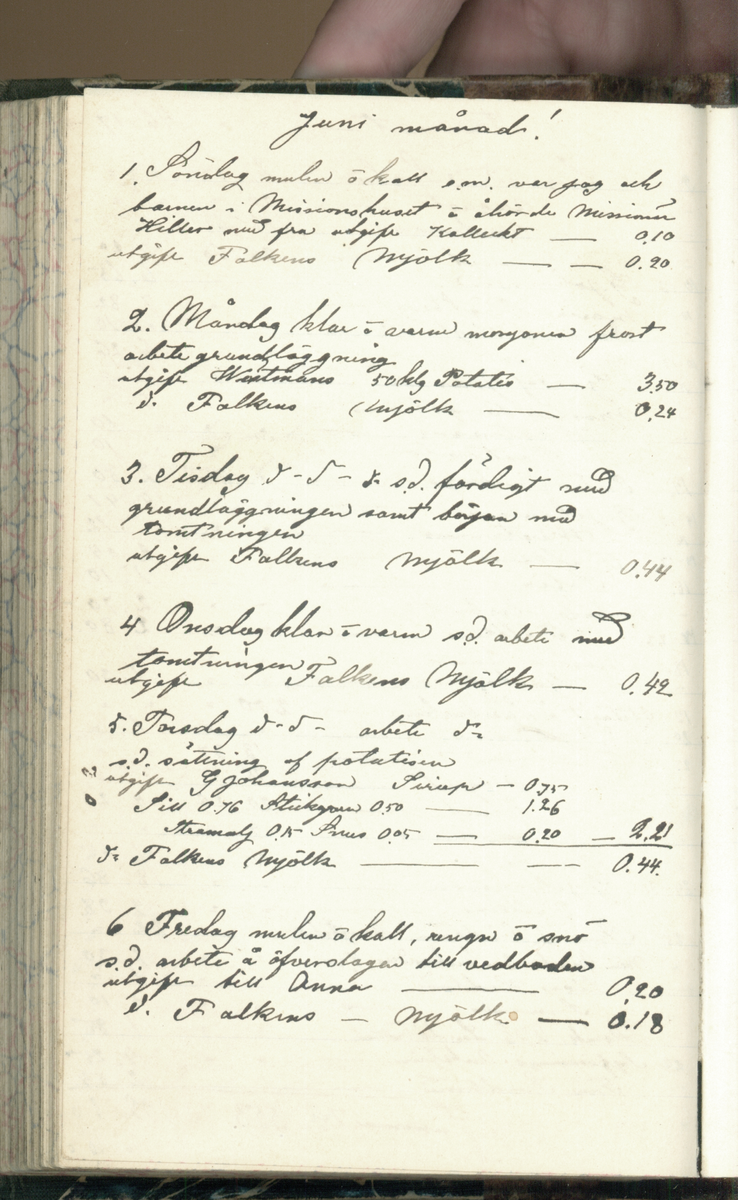 Juni månad!
1. Söndag mulen ō kall e.m. var jag och
barnen i Missionshuset ō åhörde Missionär
Hiller utgift Kollekt — 0,10
utgift Falkens Mjölk — — 0.20
2. Måndag klar ō varm morgonen frost
arbete grundläggning
utgift Westmans 50 klg Potatis — 3.50
d. Falkens Mjölk — 0,24
3. Tisdag d - d - d s.d. färdigt med
grundläggningen samt början med
tomtningen
utgift Falkens Mjölk — 0.44
4 Onsdag klar ō varm s.d. arbete med
tomtningen
utgift Falkens Mjölk — 0.42
5. Torsdag d - d - arbete d=
s.d. sättning af potatisen
utgift G Johansson Sirap — 0.75
Sill 0.76 0.50 — 1.26
0.15 Snus 0.05 — 0.20 — 2.21
d= Falkens Mjölk — — 0.44.
6 Fredag mulen ō kall, rengn ō snö
s.d. arbete å öfverslagen till vedboden
utgift till Anna — 0.20
d. Falkens — Mjölk — 0.18